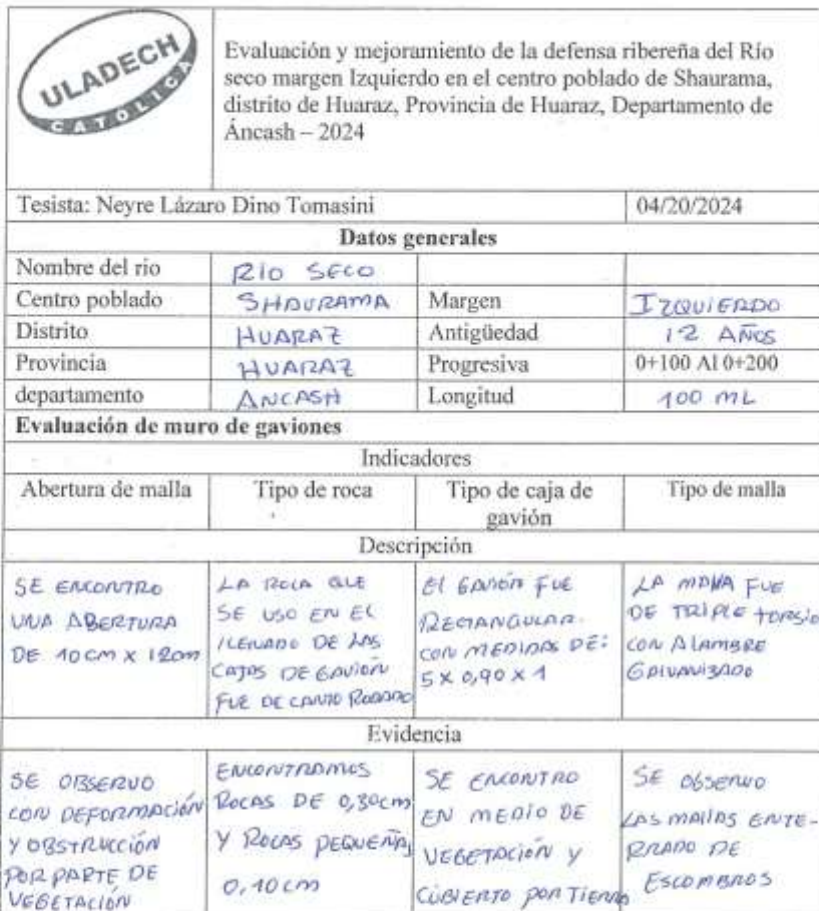 ULADECH
CATOLICA
Evaluación y mejoramiento de la defensa ribereña del Río
seco margen Izquierdo en el centro poblado de Shaurama,
distrito de Huaraz, Provincia de Huaraz, Departamento de
Áncash – 2024
Tesista: Neyre Lázaro Dino Tomasini 04/20/2024
Datos generales
Nombre del rio RÍO SECO
Centro poblado SHAURAMA Margen IZQUIERDO
Distrito HUARAZ Antigüedad 12 AÑOS
Provincia HUARAZ Progresiva 0+100 Al 0+200
departamento ANCASH Longitud 100 ML
Evaluación de muro de gaviones
Indicadores
Abertura de malla
Tipo de roca
Tipo de caja de
gavión
Tipo de malla
Descripción
SE ENCONTRO
UNA ABERTURA
DE 10 CM X 12cm
LA ROCA QUE
SE USO EN EL
LLENADO DE LAS
CAJAS DE GAVIÓN
FUE DE CANTO RODADO
El GAVIÓN FUE
RECTANGULAR.
CON MEDIDAS DE:
5 X 0,90 X 1
LA MALLA FUE
DE TRIPLE torsio
CON ALAMBRE
GALVANIZADO
Evidencia
SE OBSERVO
CON DEFORMACIÓN
Y OBSTRUCCIÓN
POR PARTE DE
VEGETACIÓN
ENCONTRAMOS
ROCAS DE 0,30cm
Y ROCAS PEQUEÑAS
0,10 cm
SE ENCONTRO
EN MEDIO DE
VEGETACIÓN Y
CUBIERTO POR TIERRA
SE OBSERVO
LAS MALLAS ENTE-
RRADO DE
ESCOMBROS